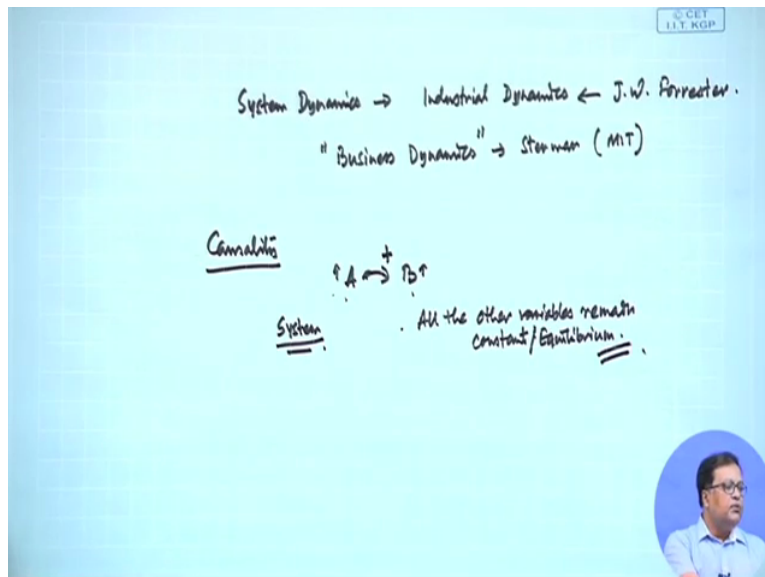 © CET
I.I.T. KGP
System Dynamics → Industrial Dynamics ← J.W. Forrester.
"Business Dynamics" → Sterman (MIT)
Causality
↑A → + B↑
System.
. All the other variables remain
constant/Equilibrium.